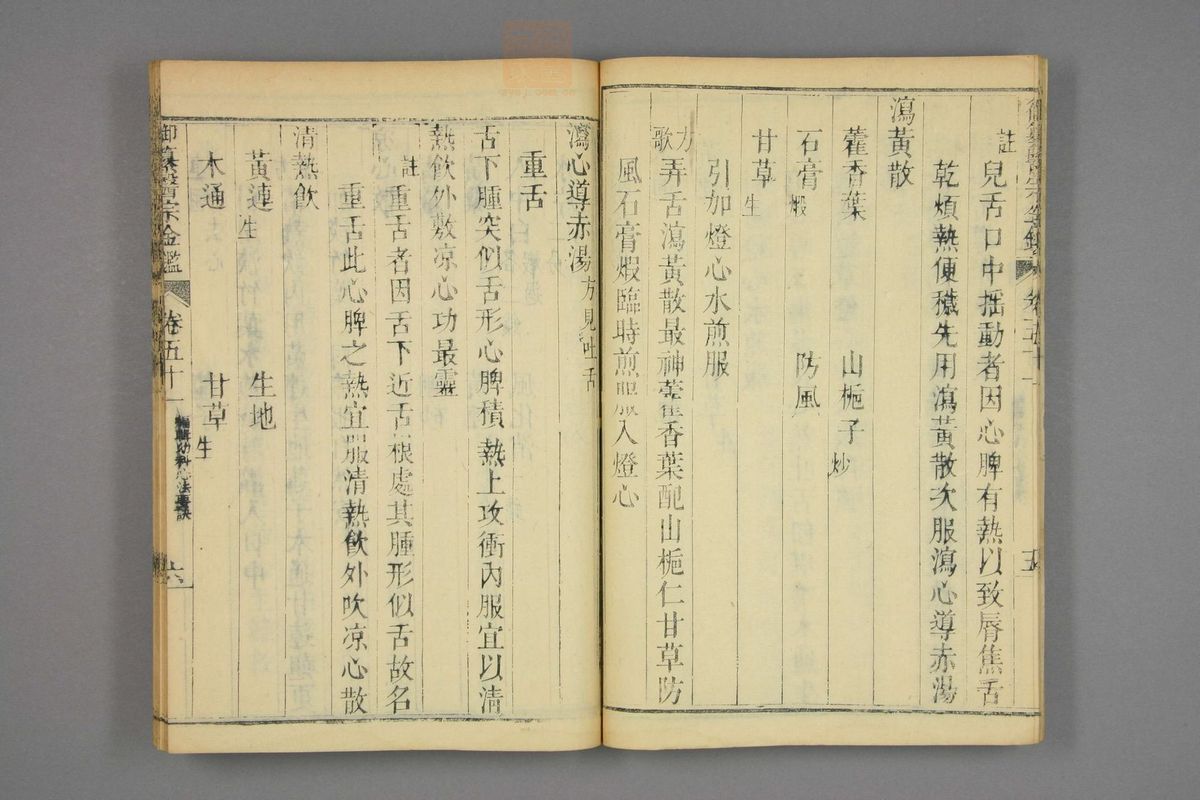 註兒舌口中揺動者因心脾有熱以致脣焦舌
乾煩熱便穢先用瀉黃散次服瀉心導赤湯
瀉黃散
藿香葉 山梔子炒
石膏煅 防風
甘草生
引加燈心水煎服
方歌弄舌瀉黃散最神藿香葉配山梔仁甘草防
風石膏煅臨時煎服入燈心
瀉心導赤湯方見吐舌
重舌
舌下腫突似舌形心脾積熱上攻衝內服宜以清
熱飲外敷凉心功最靈
註重舌者因舌下近舌根處其腫形似舌故名
重舌此心脾之熱宜服清熱飲外吹凉心散
清熱飲
黃連生 生地
木通 甘草生
御纂醫宗金鑑 卷五十一 編輯幼科心法要訣 六